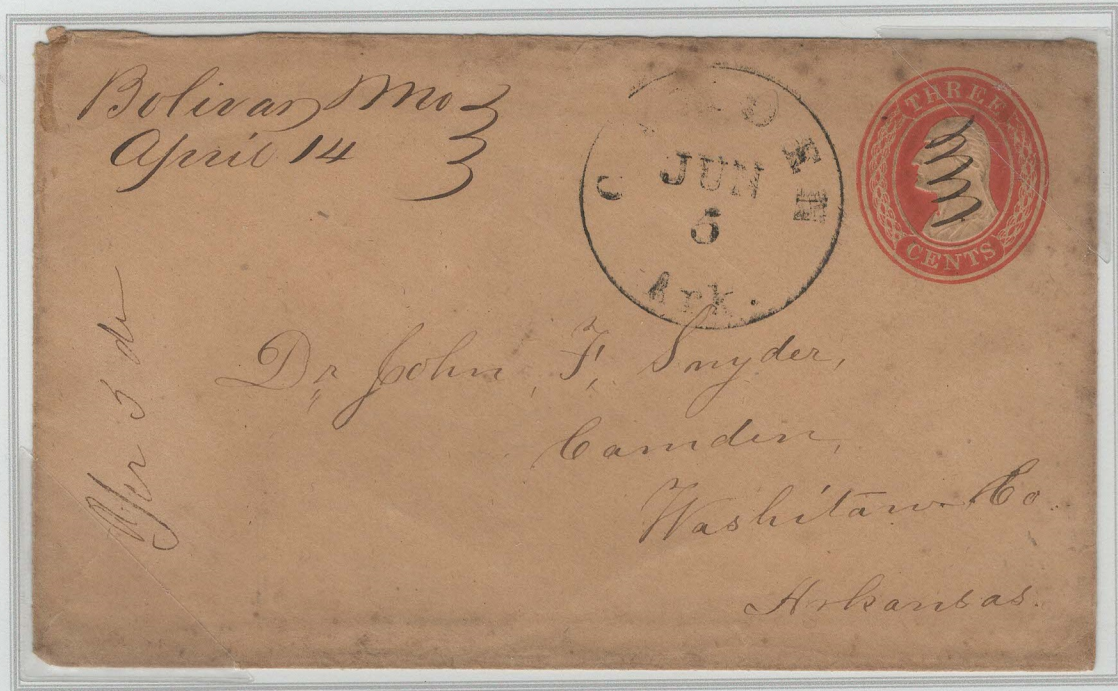 Bolivar Mo
April 14
CAMDEN
JUN
5
Ark.
THREE
CENTS
Dr John, F, Snyder,
Camden,
Washitaw Co.
Arkansas.
3